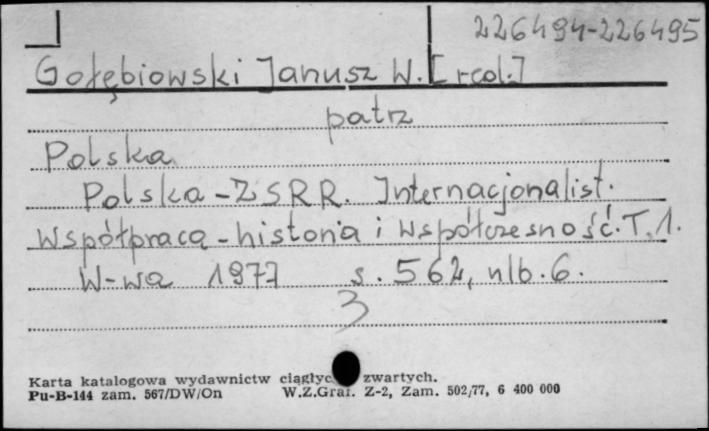 226494-226495
Gołębiowski Janusz W. [rcol.]
patrz
Polska
Polska-ZSRR. Internacjonalist.
współpraca - historia i współczesność. T. 1.
W-wa 1977 s. 562, nlb. 6.
3
Karta katalogowa wydawnictw ciągłyc zwartych.
Pu-B-144 zam. 567/DW/On W.Z.Graf. Z-2, Zam. 502/77, 6 400 000